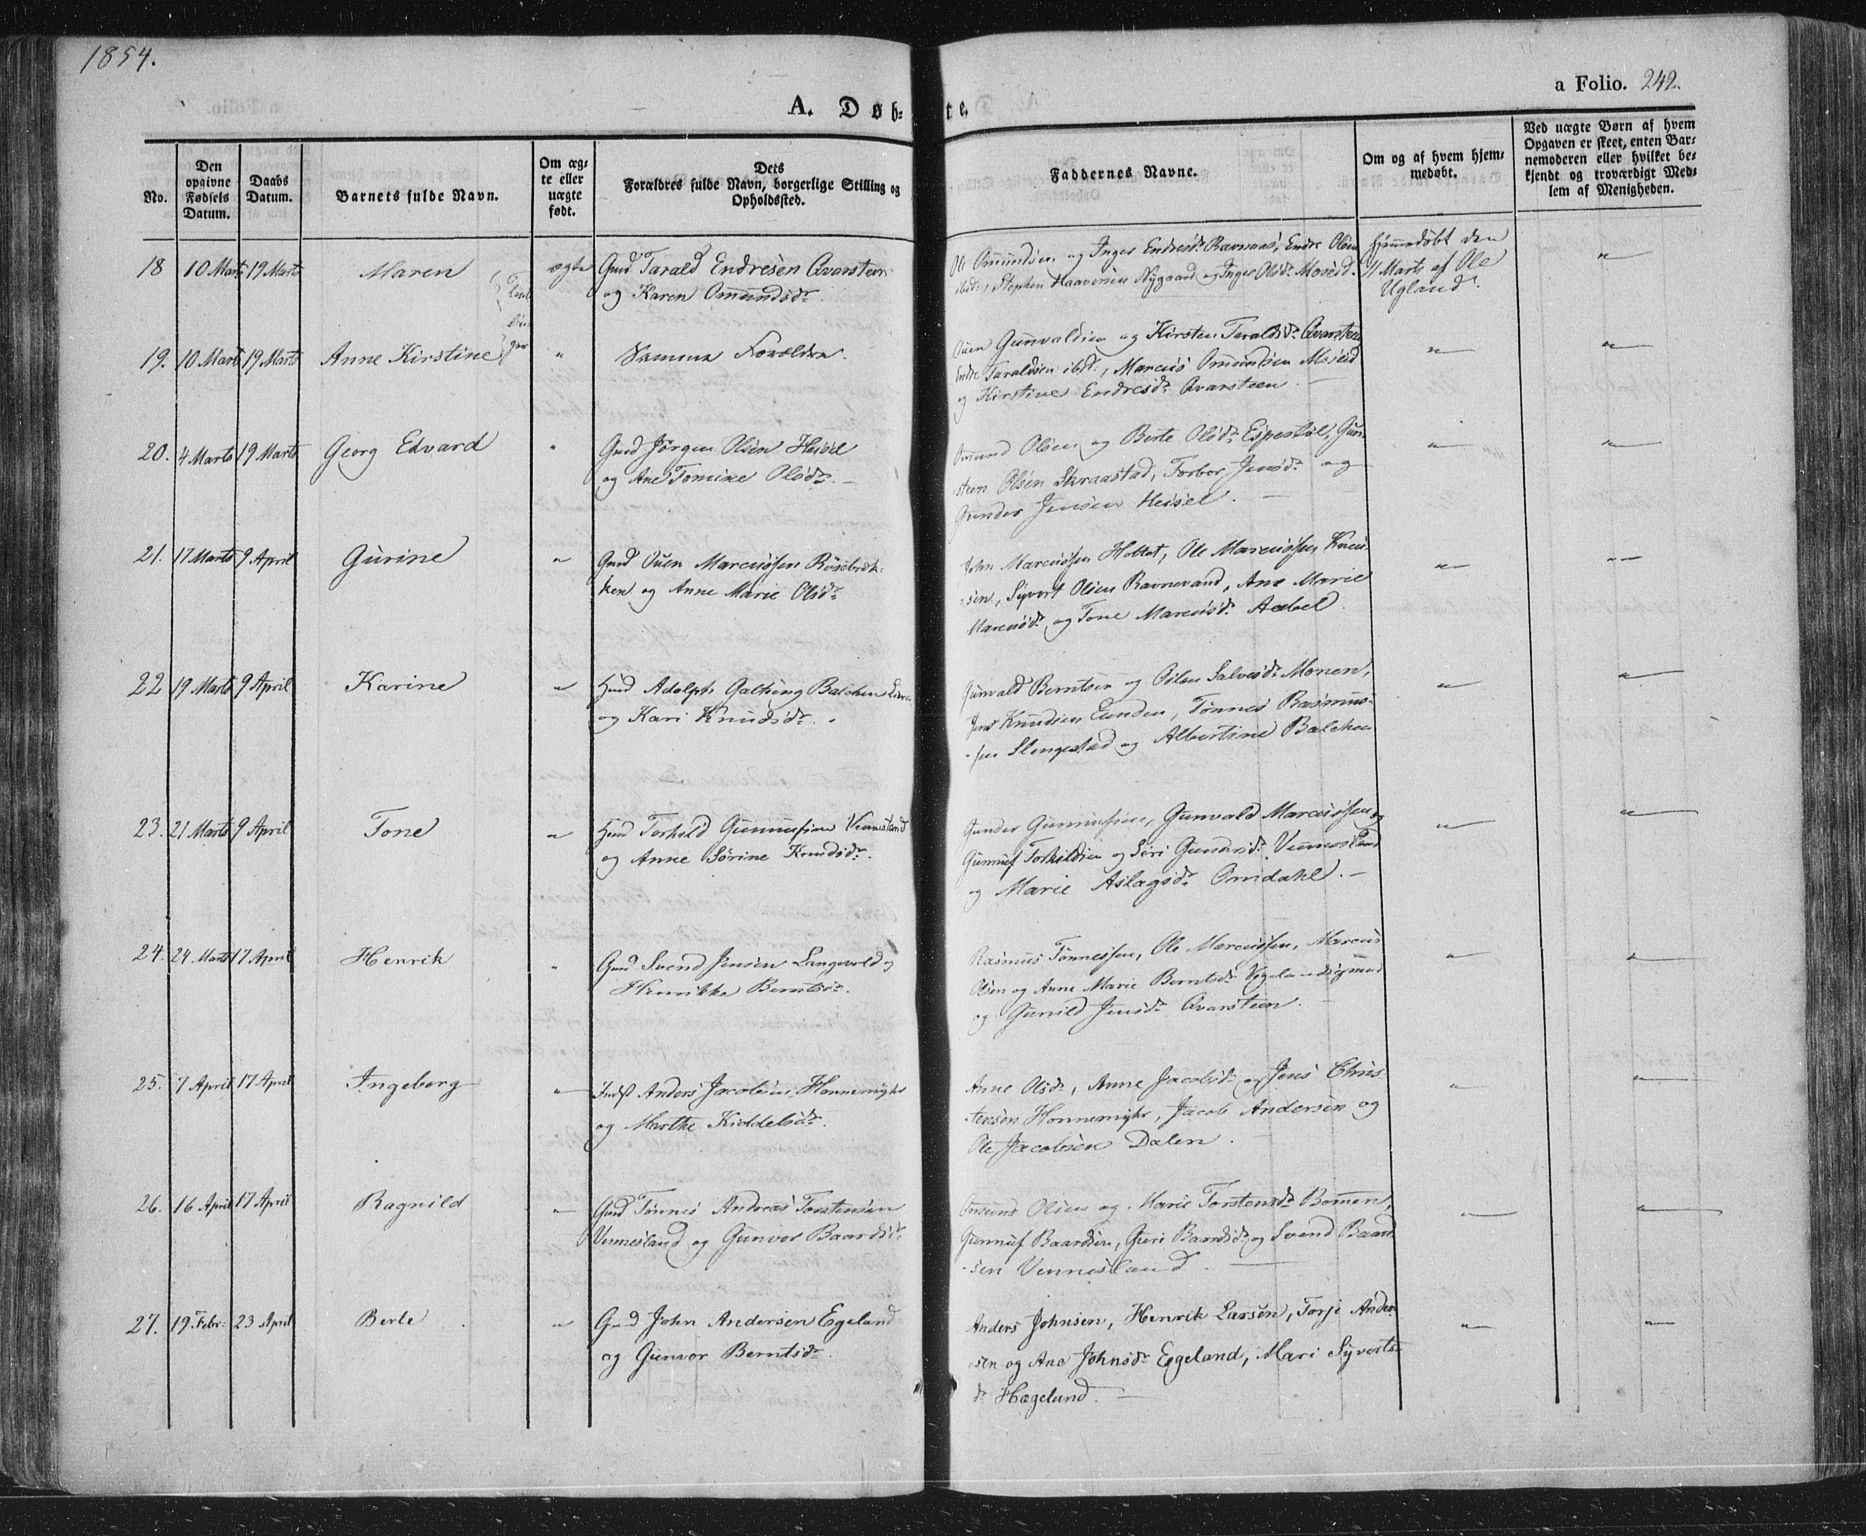 1854.
a Folio. 242.
A. Døb-
te.
No.
Den opgivne Fødsels Datum.
Daabs Datum.
Barnets fulde Navn.
Om ægte eller uægte født.
Dets Forældres fulde Navn, borgerlige Stilling og Opholdssted.
Faddernes Navne.
Om og af hvem hjemmedøbt.
Ved uægte Børn af hvem Opgaven er skeet, enten Barnemoderen eller hvilket bekjendt og troværdigt Medlem af Menigheden.
18 10 Marts 19 Marts Maren ægte Gmd Tarald Endresen Qvarsteen
og Karen Omundsdr.
Ole Omundsen og Inger Endresdr Ravnaas, Endre Olsen
ibdt, Stephen Haaversen Nygaard og Inger Olsdr Moseid.
Hjemmedøbt den
11 Marts af Ole
Ugland.
19. 10 Marts 19 Marts Anne Kirstine " Samme Forældre.
Ouen Gunvaldsen og Kirsten Taraldsdr Qvarsteen
Endre Taraldsen ibdt, Marcus Omundsen Moseid
og Kirstine Endresdr Qvarsteen.
20. 4 Marts 19 Marts Georg Edvard " Gmd Jørgen Olsen Heisel
og Ane Tomine Olsdr.
Omund Olsen og Berte Olsdr Espestøl, Gun-
steen Olsen Skraastad, Torbor Jensdr og
Gunder Jensen Heisel.
21. 17 Marts 9 April Gurine " Gmd Ouen Marcussen Røsebrek-
ken og Anne Marie Olsdr
John Marcussen Holtet, Ole Marcussen
Syvert Olsen Ravnevand, Ane Marie
Marcusdr og Tone Marcusdr Aabel.
22 19 Marts 9 April Karine " Hmd Adolph Balchen
og Kari Knudsdr.
Gunvald Berntsen og Salvesdr Monen,
Jens Knudsen Lunden, Tønnes Rasmus-
sen Slengestad og Albertine Balchen
23. 21 Marts 9 April Tone " Hmd Torkild Gunnufsen Vennesland
og Anne Sørine Knudsdr.
Gunder Gunnufsen, Gunvald Marcussen og
Gunnuf Torkildsen og Siri Gundersdr Vennesland
og Marie Aslagsdr Omdahl.
24. 24 Marts 17 April Henrik " Gmd Svend Jensen Langevold og
Henrikke Berntsdr.
Rasmus Tønnessen, Ole Marcussen, Marcus
Olsen og Anne Marie Berntsdr Vigelandsgmd
og Gunild Jensdr Qvarsteen.
25. 7 April 17 April Ingeborg " Indst Anders Jacobsen Honnemyhr
og Marthe Kiddelsdr.
Anne Olsdr, Anne Jacobsdr og Jens Chris-
tensen Honnemyhr, Jacob Andersen og
Ole Jacobsen Dalen.
26. 16 April 17 April Ragnild " Gmd Tønnes Andreas Torstensen
Vennesland og Gunvor Baardsdr.
Omund Olsen og Marie Torstensdr Bommen,
Gunnuf Baardsen, Guri Baardsdr og Svend Baard-
sen Vennesland.
27. 19 Febr. 23 April Berte " Gmd John Andersen Egeland
og Gunvor Berntsdr.
Anders Johnsen, Henrik Larsen, Torje Ander-
sen og Ane Johnsdr Egeland, Mari Syverts-
dr Hægelund.